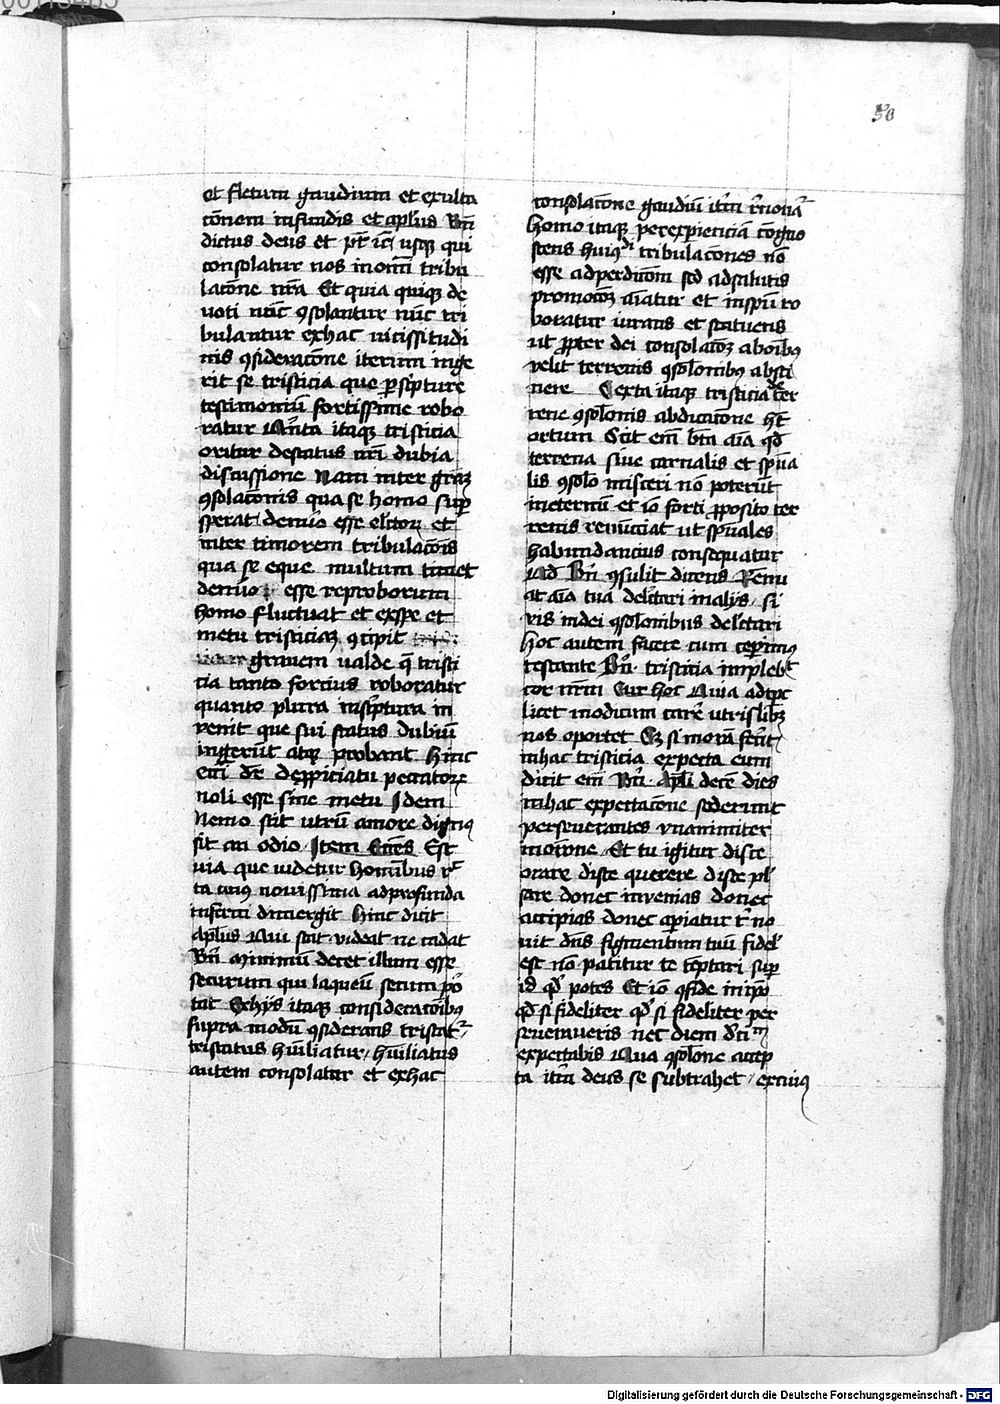 50
et fletum gaudium et exulta
cōnem infundis et aplūs Bn̄
dictus deus et pr̄ ic̄ usq qui
consolatur nos in om̄i tribu
lacōne nr̄a Et quia quiq de
voti nūc ꝯsolantur nūc tri
bulantur ex hac vicissitudi
nis ꝯsideracōne iterum inge
rit se tristicia que p scpture
testimoniū fortissime robo
ratur itaq tristicia
oritur de status nr̄i dubia
discussione Nam inter
ꝯsolacōnis qua se homo
sperat denūo esse et
inter timorem tribulacōis
qua se eque multum timet
denūo esse reproborum
homo fluctuat et ex spe et
metu ꝯcipit
gravem valde q̄ tristi
cia tanto forcius roboratur
quanto plura in scptura in
venit que sui status dubiū
ingerūt atq probant hinc
eci dr̄ de ppiciatu peccatorꝫ
noli esse sine metu Idem
Nemo scit utrū amore dignꝯ
sit an odio Item Est
via que videtur hominibus
ta cuius novissima ad profunda
inferni dimergit hinc dicit
aplūs Qui stat videat ne cadat
Bn̄ minimū decet illum esse
securum qui laqueū secum por
tat Ex hijs itaq consideracōibꝯ
supra modū ꝯsiderans tristat
tristatus hūiliatur / hūiliatus
autem consolatur et ex hac
consolacōne gaudiū itm̄
homo itaq per experienciā cogno
scens huiꝯdi tribulacōnes nō
esse ad perdicōm sed ad salutis
promocōꝫ aīatur et in spū ro
boratur iurans et statuens
ut ppter dei consolacōꝫ ab oībꝯ
velit terrenis ꝯsolonibꝯ absti
nere Certa itaq tristicia de ter
rene ꝯsolonis abdicacōne hꝫ
ortum Scit em̄ bn̄ aīa qd
terrena sive carnalis et spūa
lis ꝯsolo misceri nō poterūt
in eternū et iō forti pposito ter
renis renūciat ut spūales
habundancius consequatur
Ad Bn̄ ꝯsulit dicens Renu
at aīa tua delctari in alijs si
vis in dei ꝯsolonibus delctari
hoc autem facere cum ceperimꝯ
testante Bn̄ tristicia implebit
cor nr̄m Cur hoc Quia ad tpc
licet modicum carē utrislibꝫ
nos oportet Cꝫ si morā fecit
in hac tristicia expecta eum
dicit em̄ Bn̄ Apli decē dies
in hac expectacōne sederunt
perseverantes unanimiter
in orōne Et tu igitur disce
orare disce querere disce pl
sare donec invenias donec
accipias donec apiatur no
vit dns figmentum tuū fidel
est nō patitur te temptari sup
id qd potes Et iō ꝯfide in ipo
qd si fideliter qd si fideliter per
severaveris nec diem
expectabis Qua ꝯsolone accep
ta itm̄ deus se subtrahet / ex cuiꝯ
Digitalisierung gefördert durch die Deutsche Forschungsgemeinschaft - DFG